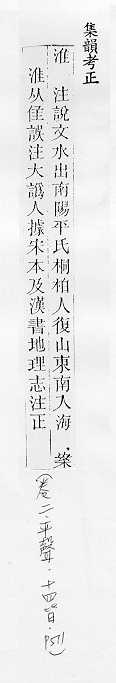 集韻考正
淮 注說文水出南陽平氏桐柏人復山東南入海,案
淮从隹誤注大譌人據宋本及漢書地理志注正
(卷二·平聲·十四皆·P511)